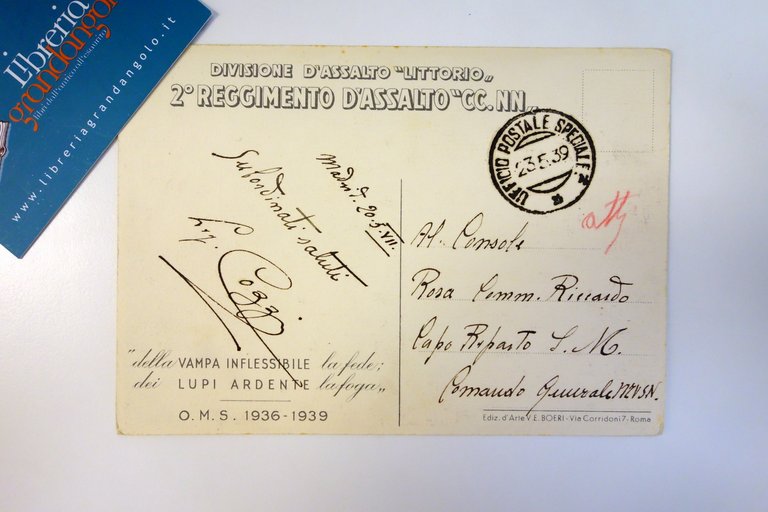 Libreria
grandangolo
libri dall'antico all'esaurito
www.libreriagrandangolo.it
DIVISIONE D'ASSALTO "LITTORIO„
2º REGGIMENTO D'ASSALTO "CC.NN„
UFFICIO POSTALE SPECIALE
23.5.39
Madrid. 20.5.XVII.
Subordinati saluti
Cozzi
Al Console
Rosa Comm. Riccardo
Capo Reparto S. M.
Comando Generale MVSN.
"della VAMPA INFLESSIBILE la fede;
dei LUPI ARDENTE la foga„
O.M.S. 1936-1939
Ediz. d'Arte V. E. BOERI - Via Corridoni 7 - Roma